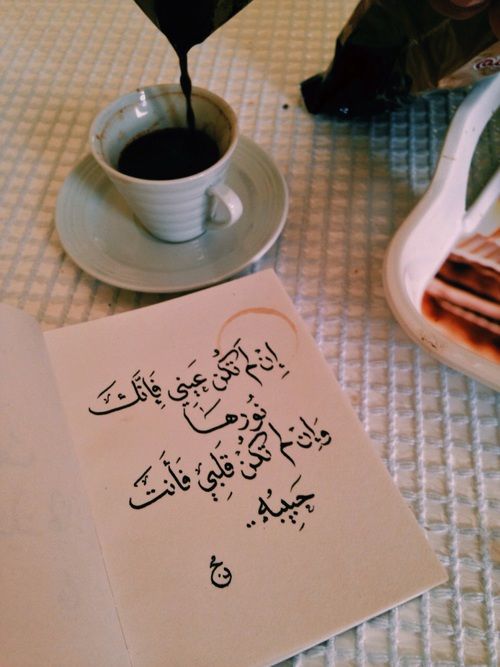 إِنْ لَمْ تَكُنْ عَيْنِي فَإِنَّكَ
نُورُهَا
وَإِنْ لَمْ تَكُنْ قَلْبِي فَأَنْتَ
حَبِيبُهُ..